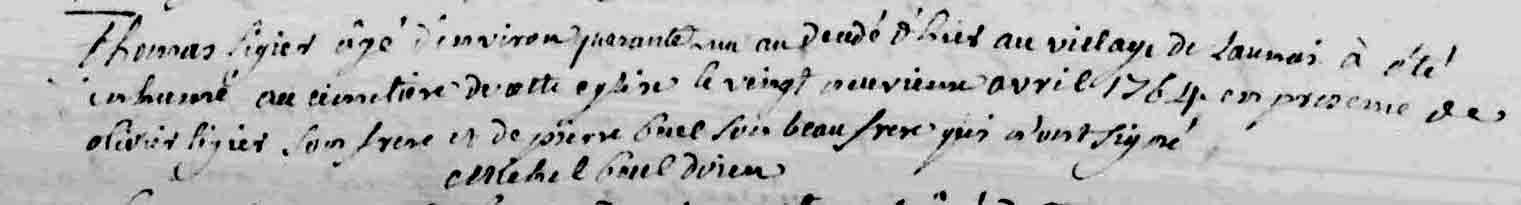 Thomas ligier âgé d'environ quarante un an decedé d'hier au village de Launai à été
inhumé au cimetiere de cette eglise le vingt neuvieme avril 1764 en presence de
olivier ligier son frere et de pierre buel son beau frere qui n'ont signé
Michel buel doien